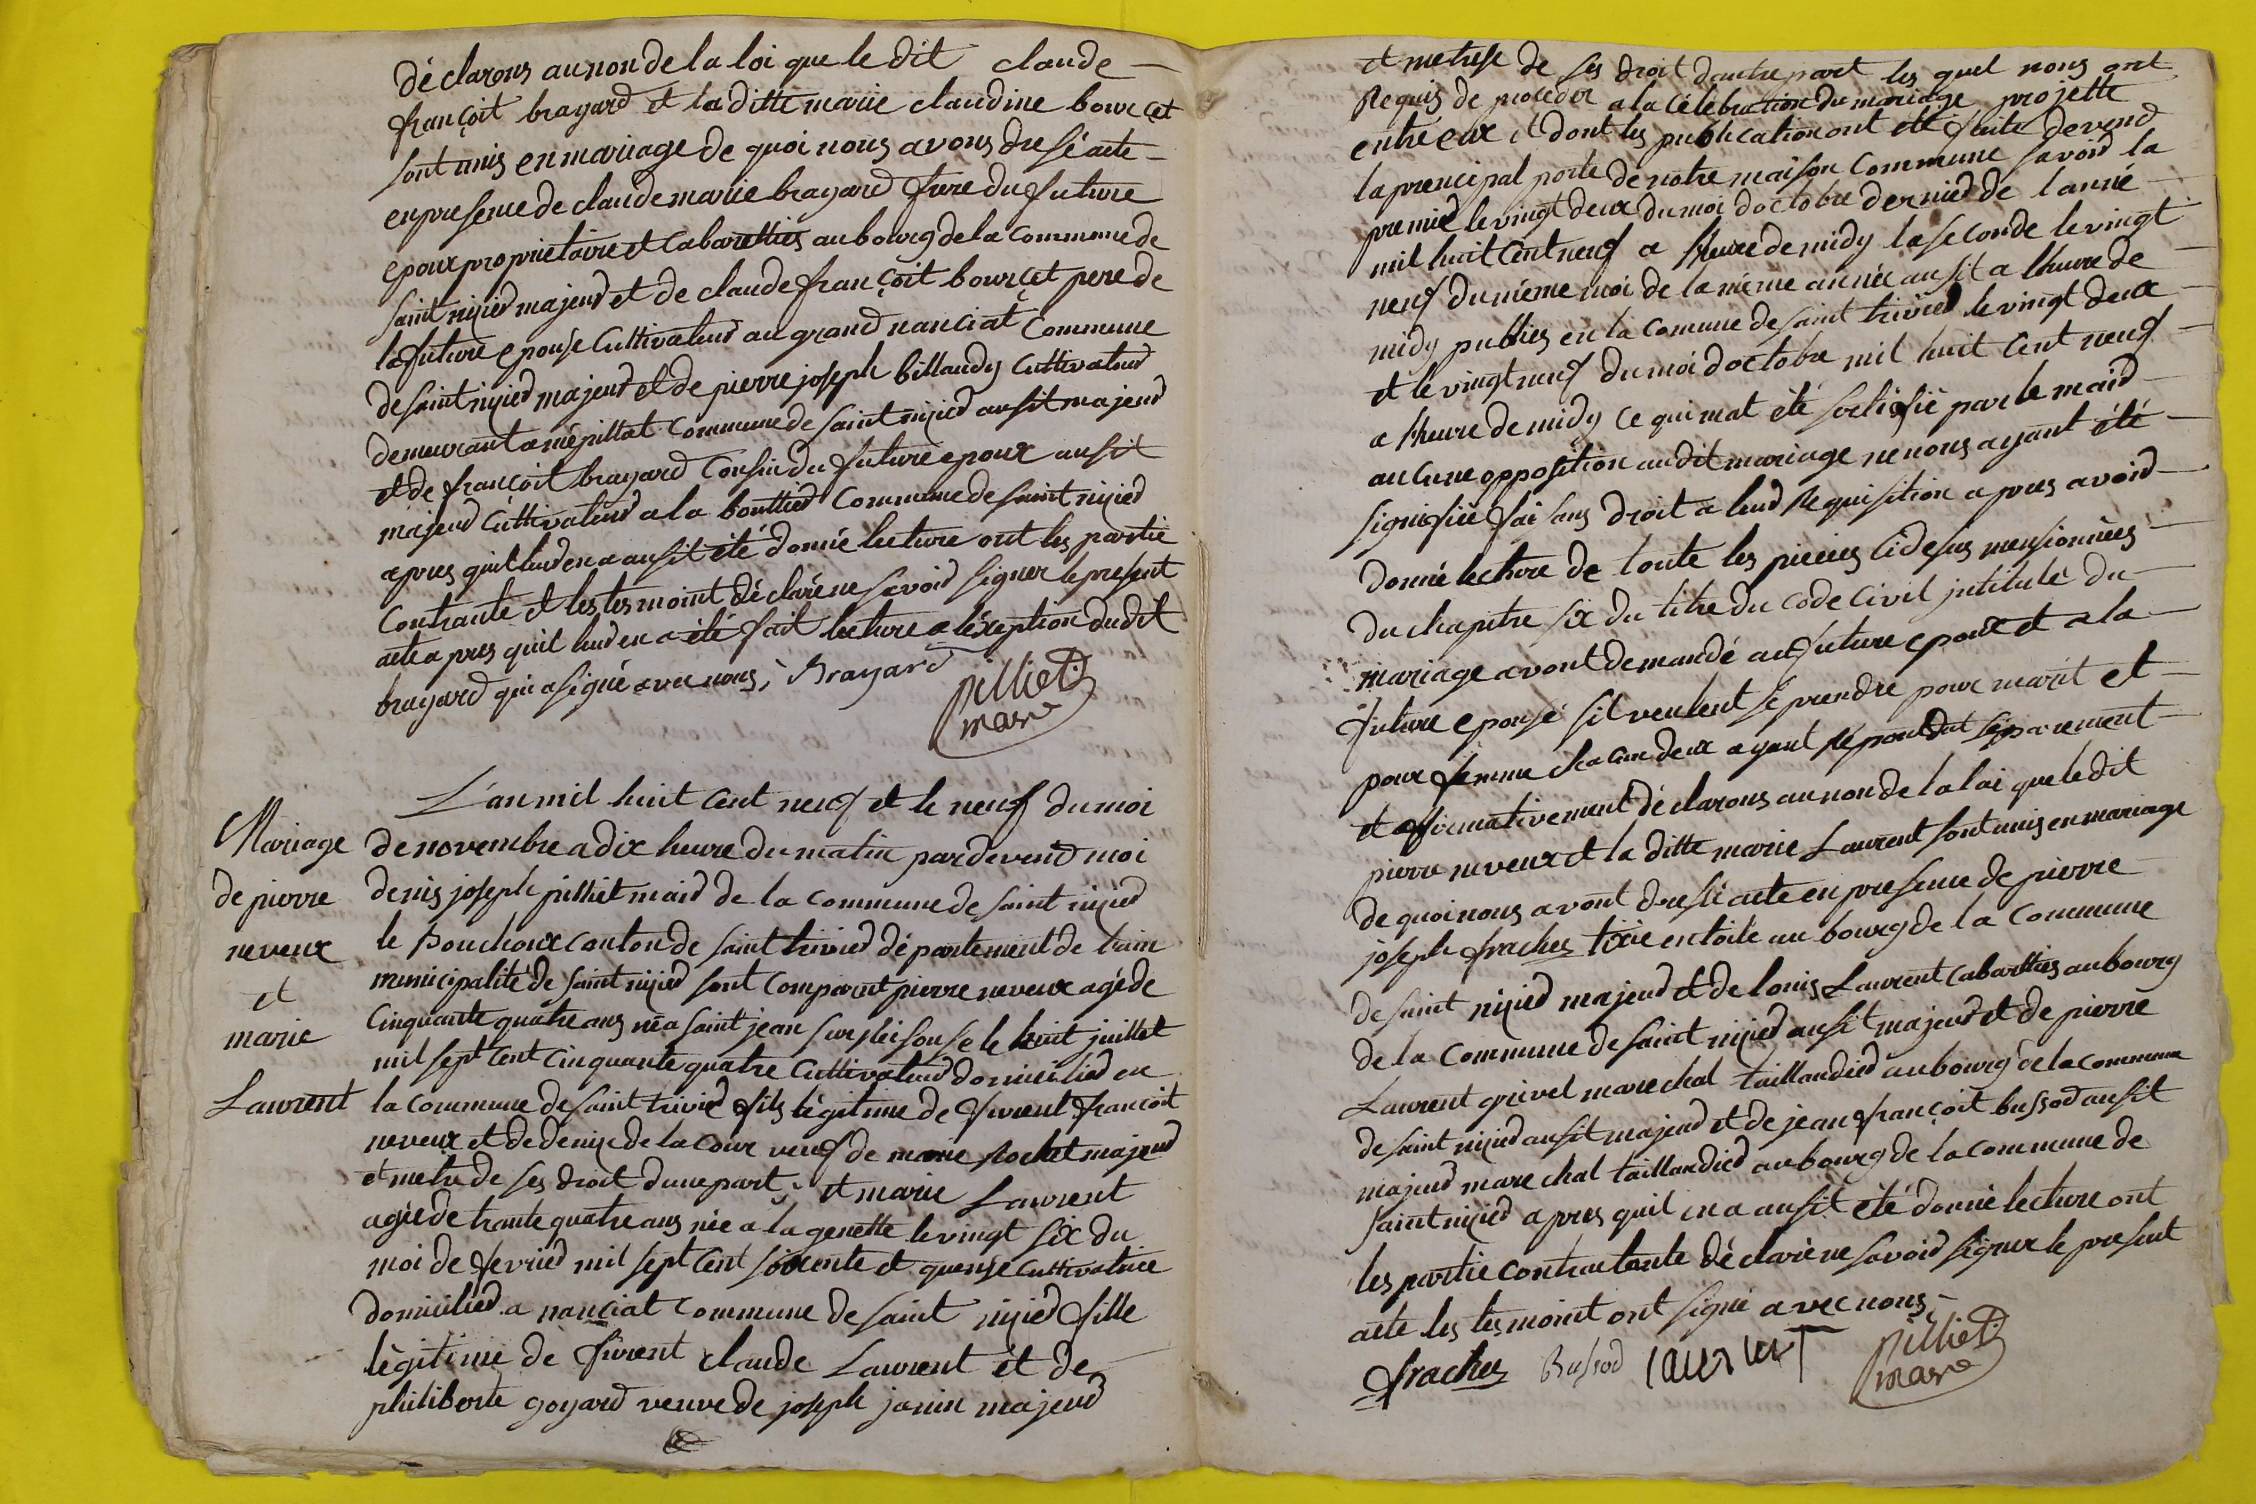 déclarons au non de la loi que le dit claude
françoit brayard et la ditte marie claudine bourcet
sont unis en mariage de quoi nous avons dresé acte
en presence de claude marie brayard frere du future
epoux proprietaire et cabarettier au bourg de la commune de
saint nizied majeur et de claude françoit bourcet pere de
la future epouse cultivateur au grand nanciat commune
de saint nizied majeur et de pierre joseph billaudy cultivateur
demeurant a mépillat commune de saint nizied ausit majeur
et de françoit brayard cousin du future epoux ausit
majeur cultivateur a la bouttier commune de saint nizied
apres quil leur en a ausit été donné lecture ont les partie
contrante et les tesmoint déclaré ne savoir signer le present
acte apres quil leur en a été fait lecture a léxeption du dit
brayard qui a signé avec nous, Brayard
pilliet
mare
L'an mil huit cent neuf et le neuf du moi
Mariage
de pierre
neveux
et
marie
Laurent
de novembre a dix heure du matin par devend moi
denis joseph pilliet maird de la commune de saint nizied
le bouchoux canton de saint trivied département de lain
municipalité de saint nizied sont comparut pierre neveux agé de
cinquante quatre ans né a saint jean sur reisouse le huit juillet
mil sept cent cinquante quatre cultivateur domicilied en
la commune de saint trivied fils légitime de fivrent françoit
neveux et de denise de la cour veuf de marie rochet majeur
et metre de ses droit dune part; et marie Laurent
agée de trante quatre ans née a la genette le vingt six du
moi de fevried mil sept cent soixente et quense cultivatrice
domicilied a nanciat commune de saint nizied fille
légitime de fivrent claude Laurent et de
philiberte goyard veuve de joseph janin majeur
et metresse de ses droit dautre part les quel nous ont
requis de proceder a la célebration du mariage projette
entre eux et dont les publication ont été faite devend
la prencipal porte de notre maison commune savoir la
premied le vingt deux du moi doctobre dernied de lanné
mil huit cent neuf a lheure de midy la seconde le vingt
neuf du méme moi de la méme année ausit a lheure de
midy publies en la comune de saint trivied le vingt deux
et le vingt neuf du moi doctobre mil huit cent neuf
a lheure de midy ce qui mat été sertifié par le maird
aucune opposition au dit mariage ne nous ayant été
signifiée fai sans droit a leur requisition apres avoir
donné lecture de toute les pieces cidesus mensionnées
du chapitre six du titre du code civil jntitulé du
mariage avont demandé au future epoux et a la
future epouse sil veulent se prendre pour marit et
pour femme chacun deux ayant répondut séparement
et affirmativement déclarons au non de la loi que le dit
pierre neveux et la ditte marie Laurent sont unis en mariage
de quoi nous avont dresé acte en presence de pierre
joseph frachez tixie en toile au bourg de la commune
de saint nizied majeur et de louis Laurent cabarettier au bourg
de la commune de saint nizied ausit majeur et de pierre
Laurent grivel marechal taillandied au bourg de la commune
de saint nizied ausit majeur et de jean françoit bussod ausit
majeur marechal taillandied au bourg de la commune de
saint nizied apres quil en a ausit été donné lecture ont
les partie contractante déclaré ne savoir signer le present
acte les tesmoint ont signé avec nous
frachez Bussod laurent pilliet
mare